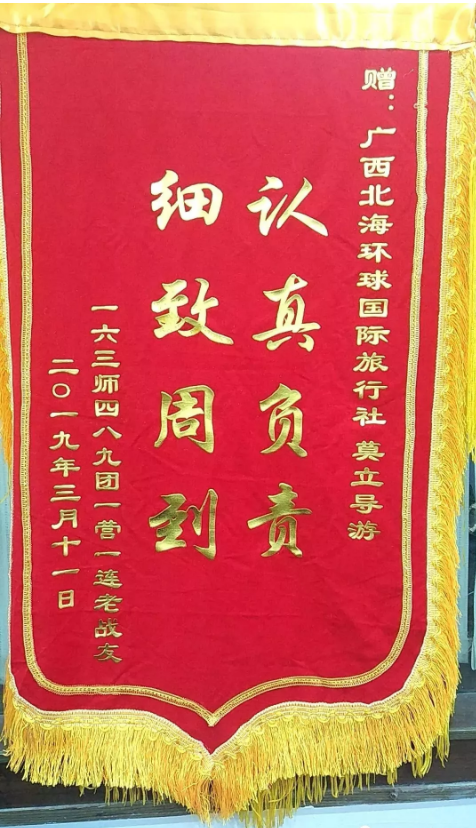 赠：广西北海环球国际旅行社 莫立导游
认真负责
细致周到
一六三师四八九团一营一连老战友
二〇一九年三月十一日